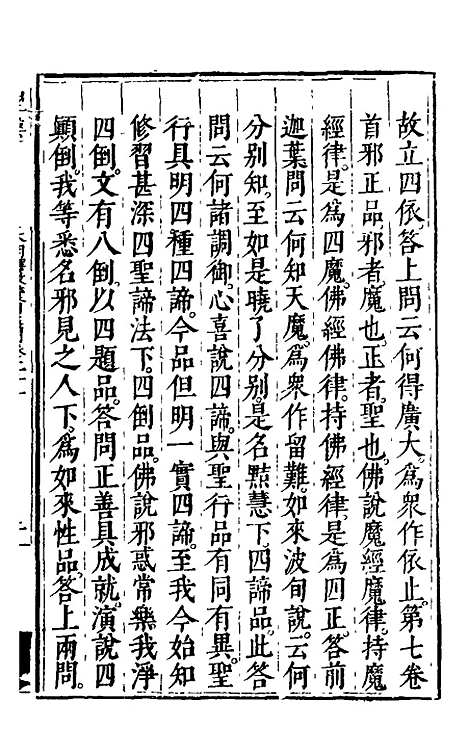 故立四依。答上問云何得廣大。爲衆作依止。第七卷
首邪正品。邪者。魔也。正者。聖也。佛說魔經魔律。持魔
經律。是爲四魔。佛經佛律。持佛經律。是爲四正。答前
迦葉問云何知天魔。爲衆作留難。如來波旬說。云何
分別知。至如是曉了分別。是名黠慧下。四諦品。此答
問云何諸調御。心喜說四諦。與聖行品有同有異。聖
行具明四種四諦。今品但明一實四諦。至我今始知
修習甚深四聖諦法下。四倒品。佛說邪惑常樂我淨
四倒。文有八倒。以四題品。答問正善具成就。演說四
顚倒。我等悉名邪見之人下。爲如來性品。答上兩問。